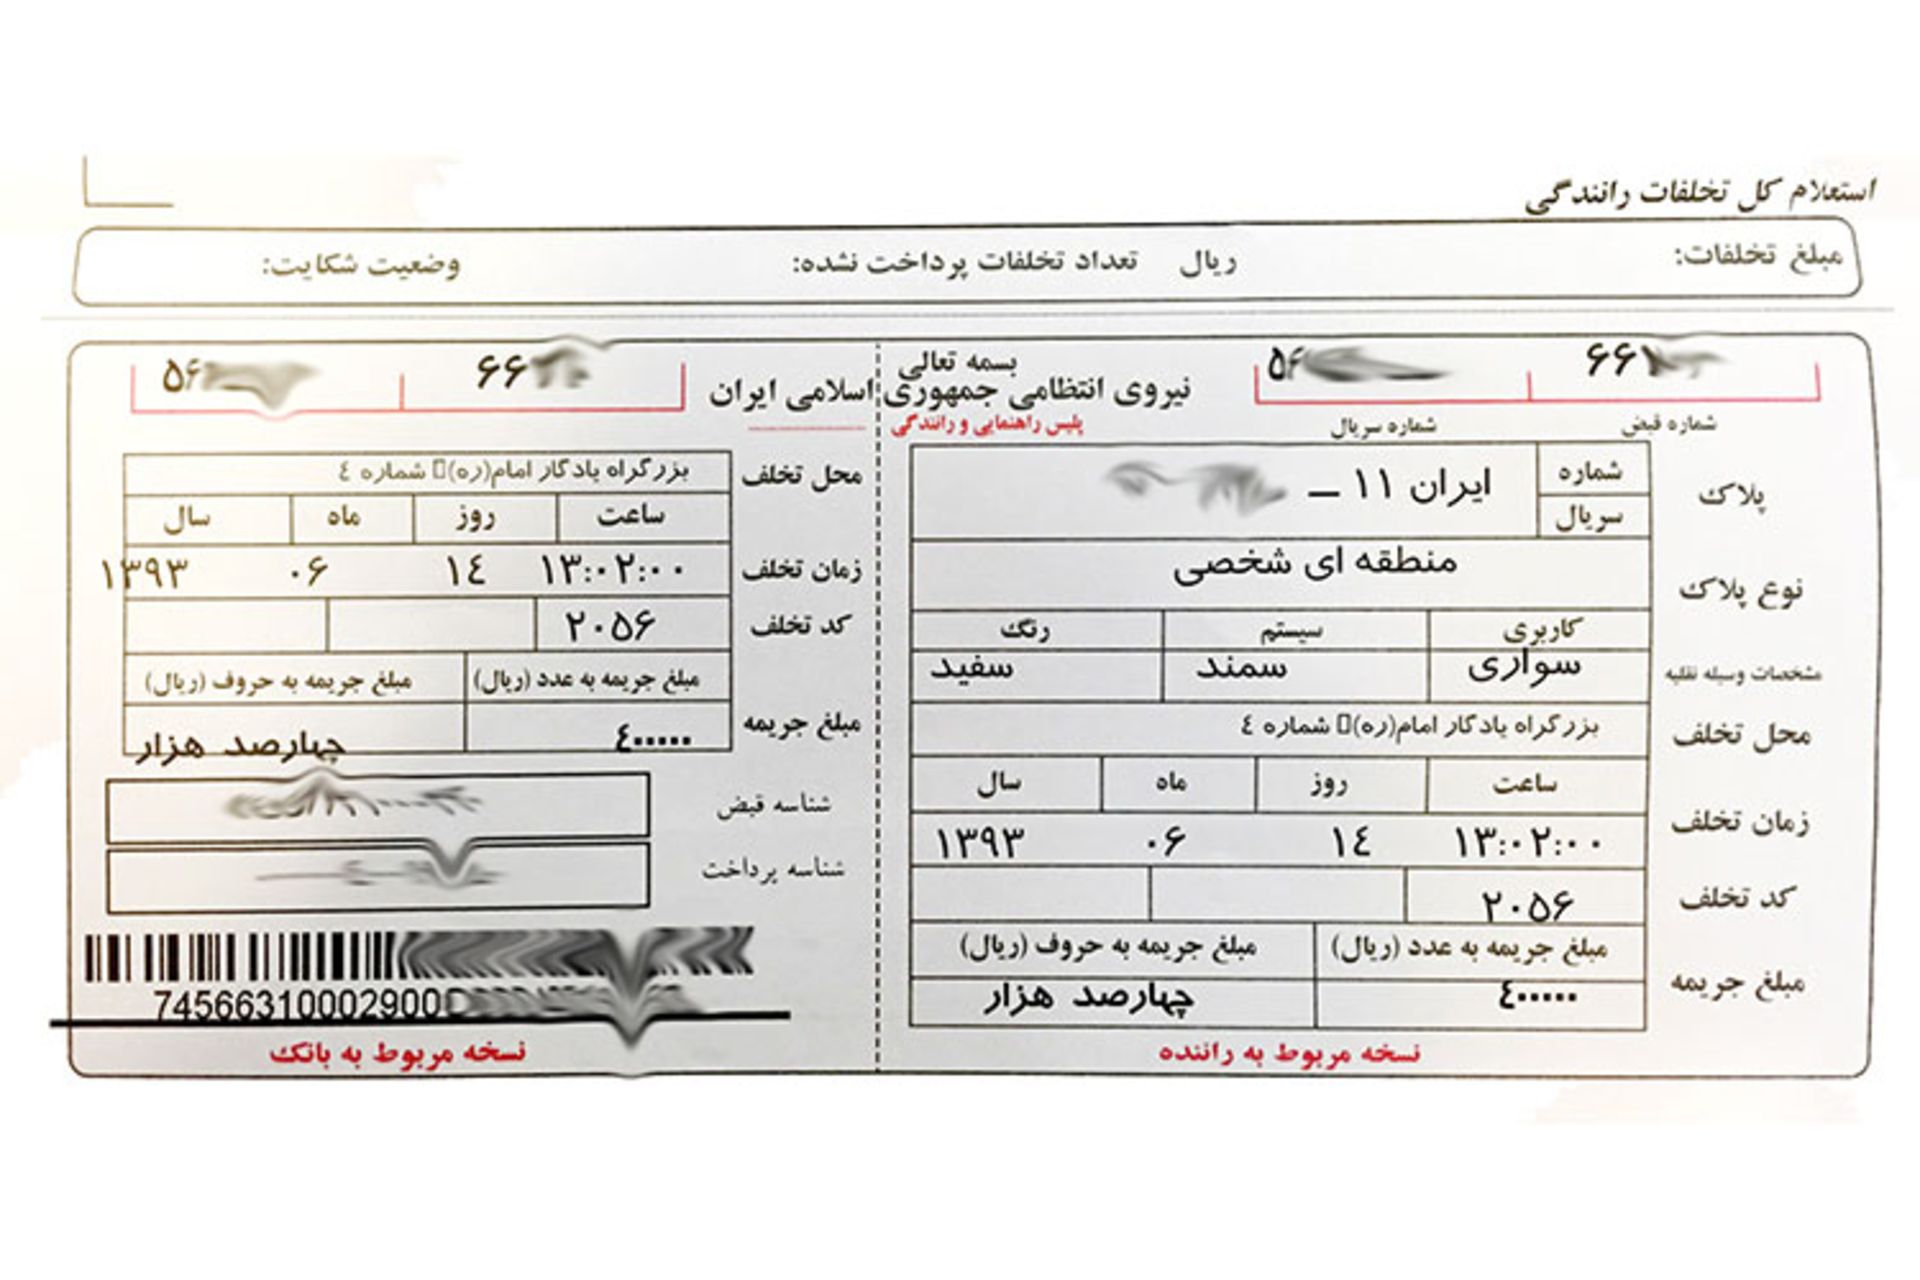 استعلام کل تخلفات رانندگی
مبلغ تخلفات: ریال تعداد تخلفات پرداخت نشده: وضعیت شکایت:
بسمه تعالی
نیروی انتظامی جمهوری اسلامی ایران
پلیس راهنمایی و رانندگی
۶۶
۵۶
شماره قبض شماره سریال
پلاک شماره سریال ایران ۱۱ ــ
نوع پلاک منطقه ای شخصی
کاربری سیستم رنگ
مشخصات وسیله نقلیه سواری سمند سفید
محل تخلف بزرگراه یادگار امام(ره)▯ شماره ٤
ساعت روز ماه سال
زمان تخلف ۱۳:۰۲:۰۰ ۱٤ ۰۶ ۱۳۹۳
کد تخلف ۲۰۵۶
مبلغ جریمه به عدد (ریال) مبلغ جریمه به حروف (ریال)
مبلغ جریمه ٤۰۰۰۰۰ چهارصد هزار
نسخه مربوط به راننده
۶۶
۵۶
محل تخلف بزرگراه یادگار امام(ره)▯ شماره ٤
ساعت روز ماه سال
زمان تخلف ۱۳:۰۲:۰۰ ۱٤ ۰۶ ۱۳۹۳
کد تخلف ۲۰۵۶
مبلغ جریمه به عدد (ریال) مبلغ جریمه به حروف (ریال)
مبلغ جریمه ٤۰۰۰۰۰ چهارصد هزار
شناسه قبض
شناسه پرداخت
74566310002900
نسخه مربوط به بانک